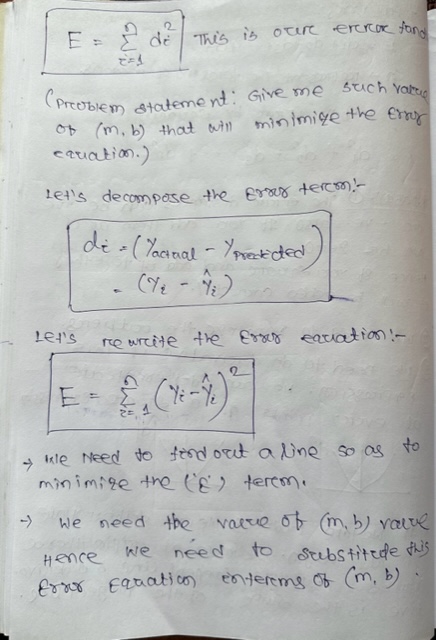 E = Σ_{i=1}^{n} di² This is our error func
(Problem statement: Give me such value
of (m, b) that will minimize the error
equation.)
Let's decompose the error term:-
di = (Yactual - Ypredicted)
= (Yi - Ŷi)
Let's rewrite the error equation:-
E = Σ_{i=1}^{n} (Yi - Ŷi)²
→ We need to find out a line so as to
minimize the ('E') term.
→ We need the value of (m, b) value
Hence we need to substitute this
error equation interms of (m, b).